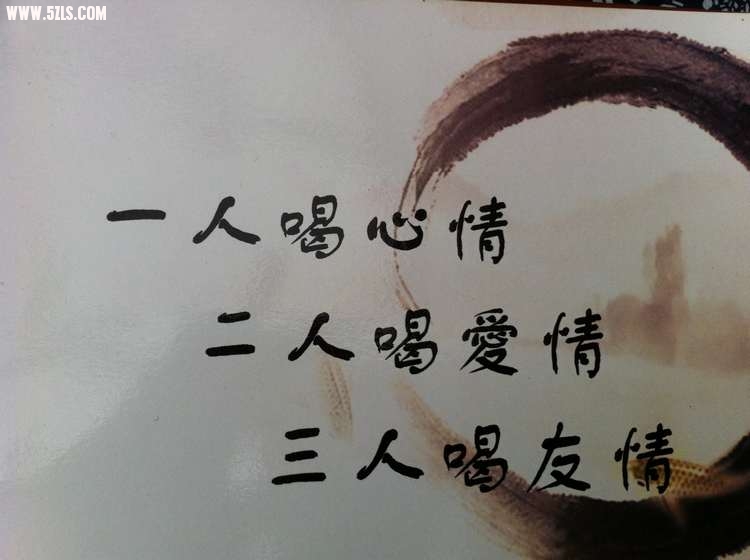 WWW.5ZLS.COM
一人喝心情
二人喝愛情
三人喝友情